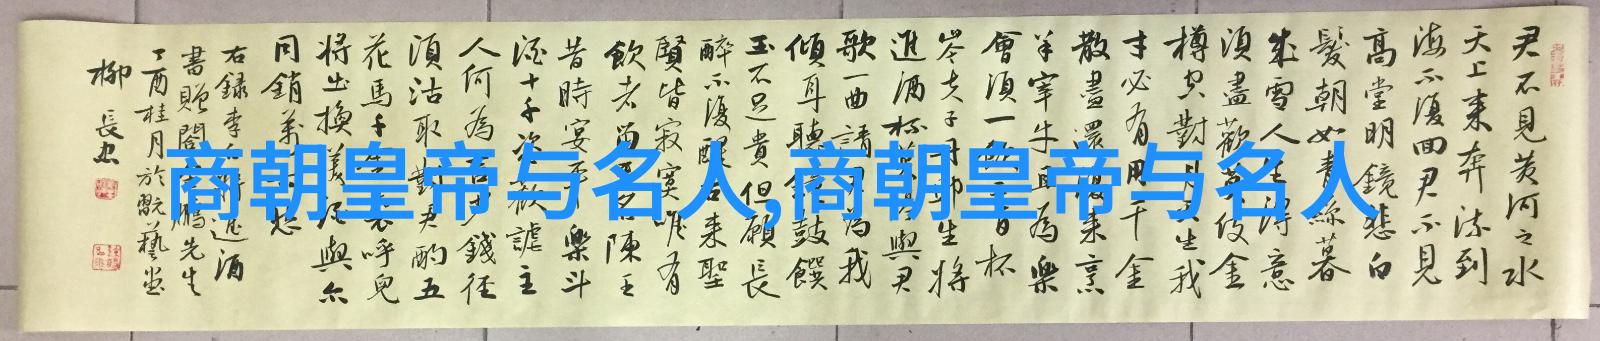 君不見黄河之水
天上来奔流到
海不復回君不見
高堂明鏡悲白
髮朝如青絲暮
成雪人生得意
須盡歡莫使金
樽空對月天生我
才必有用千金
散盡還復来烹
羊宰牛且為樂
會須一飲三百杯
岑夫子丹邱生將
進酒杯莫停與君
歌一曲請君為我
傾耳聽鐘鼓饌
玉不足貴但願長
醉不復醒古来聖
賢皆寂寞唯有
飲者留其名陳王
昔時宴平樂斗
酒十千恣歡謔主
人何為言少錢径
須沽取對君酌五
花馬千金裘呼兒
將出換美酒與尔
同銷萬古愁
右録李白將進酒
書贈閻鵬先生
丁酉桂月於翫藝堂
柳長忠
商朝皇帝与名人,商朝皇帝与名人